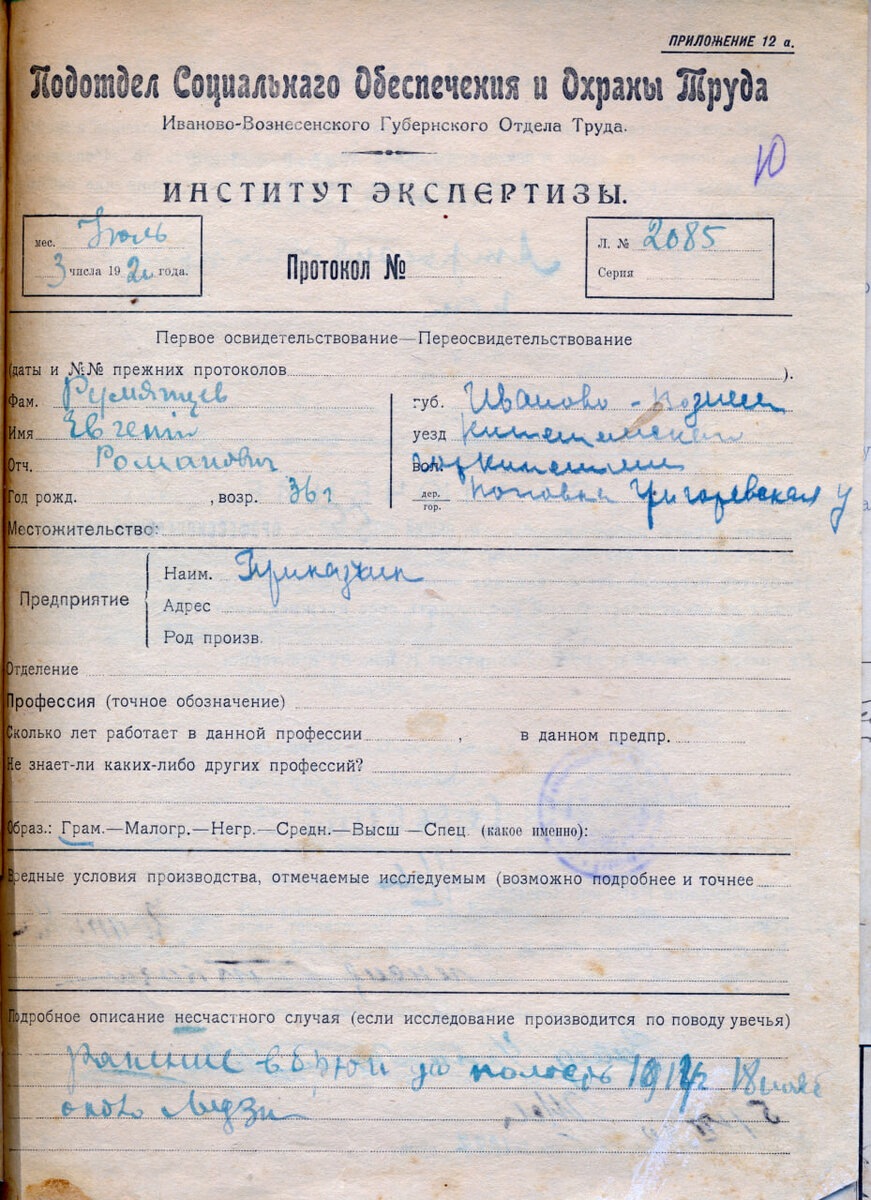 ПРИЛОЖЕНИЕ 12 а.
Подотдел Социальнаго Обеспечения и Охраны Труда
Иваново-Вознесенского Губернского Отдела Труда.
10
ИНСТИТУТ ЭКСПЕРТИЗЫ.
мес. Июль
3 числа 192 года.
Протокол №
Л. № 2085
Серия
Первое освидетельствование—Переосвидетельствование
(даты и №№ прежних протоколов ).
Фам. Румянцев
Имя Евгений
Отч. Романович
Год рожд. , возр. 36 г
Местожительство:
губ. Иваново-Вознесен
уезд Кинешемской
вол.
дер.
гор. Григоревская у
Предприятие
Наим. Приказчик
Адрес
Род произв.
Отделение
Профессия (точное обозначение)
Сколько лет работает в данной профессии , в данном предпр.
Не знает-ли каких-либо других профессий?
Образ.: Грам.—Малогр.—Негр.—Средн.—Высш —Спец. (какое именно):
Вредные условия производства, отмечаемые исследуемым (возможно подробнее и точнее
Подробное описание несчастного случая (если исследование производится по поводу увечья)
ранение в 18 нояб
около Лодзи